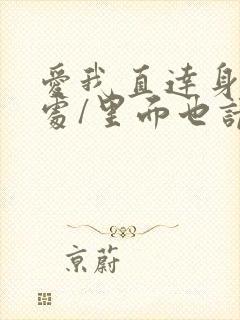 愛我直達身
處/里而也請
京蔚